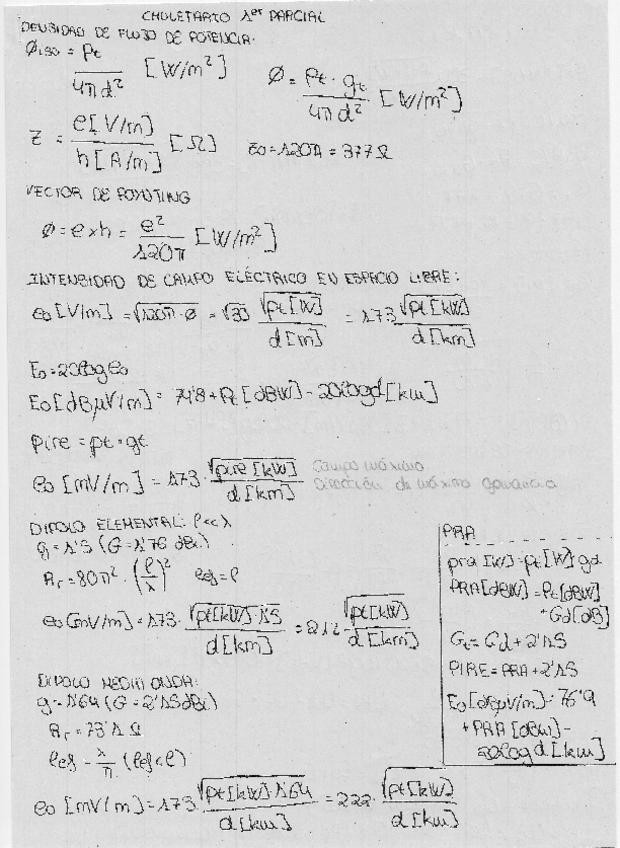 CHULETARIO 1er PARCIAL
DENSIDAD DE FLUJO DE POTENCIA.
Ø iso = pt / 4πd² [W/m²]
Ø = pt · gt / 4πd² [W/m²]
Z = e[V/m] / h[A/m] [Ω]
Z0 = 120π = 377 Ω
VECTOR DE POYNTING
Ø = e × h = e² / 120π [W/m²]
INTENSIDAD DE CAMPO ELÉCTRICO EN ESPACIO LIBRE:
e0 [V/m] = √120π·Ø = √30 √pt[W] / d[m] = 173 √pt[kW] / d[km]
E0 = 20log e0
E0[dBμV/m] = 74'8 + Pt [dBW] - 20log d [km]
pire = pt · gt
e0 [mV/m] = 173 · √pire [kW] / d [km]
Campo máximo
Dirección de máxima ganancia
DIPOLO ELEMENTAL: l<<λ
g = 1'5 (G = 1'76 dBi)
Rr = 80π² · (l/λ)² lef = l
e0 [mV/m] = 173 · √pt[kW]·1'5 / d[km] = 212 · √pt[kW] / d[km]
DIPOLO MEDIA ONDA:
g = 1'64 (G = 2'15 dBi)
Rr = 73'1 Ω
lef = λ/π (lef < l)
e0 [mV/m] = 173 · √pt[kW]·1'64 / d[km] = 222 · √pt[kW] / d[km]
PRA
pra [W] = pt [W] gd
PRA [dBW] = Pt [dBW]
+ Gd [dB]
Gt = Gd + 2'15
PIRE = PRA + 2'15
E0 [dBμV/m] = 76'9
+ PRA [dBW] -
20log d [km]